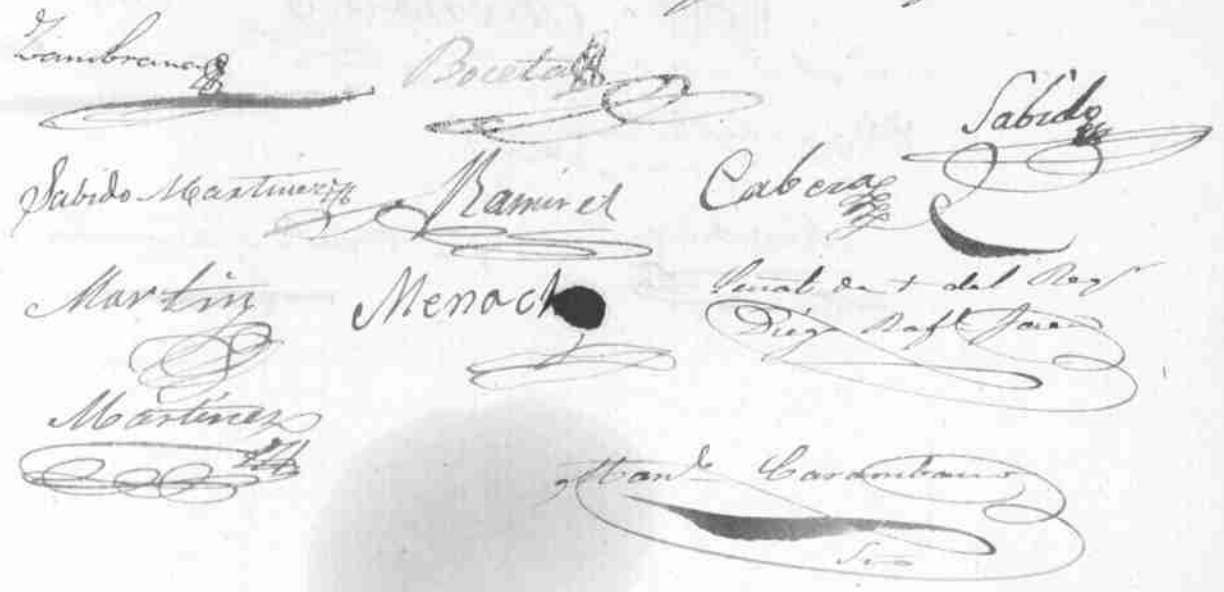 Zambrana
Boceta
Sabido
Sabido Martinez
Ramirez
Cabeza
Martin
Menach
Señal de + del Rexr
Diego Rafl
Martinez
Manl Carambano
Sro